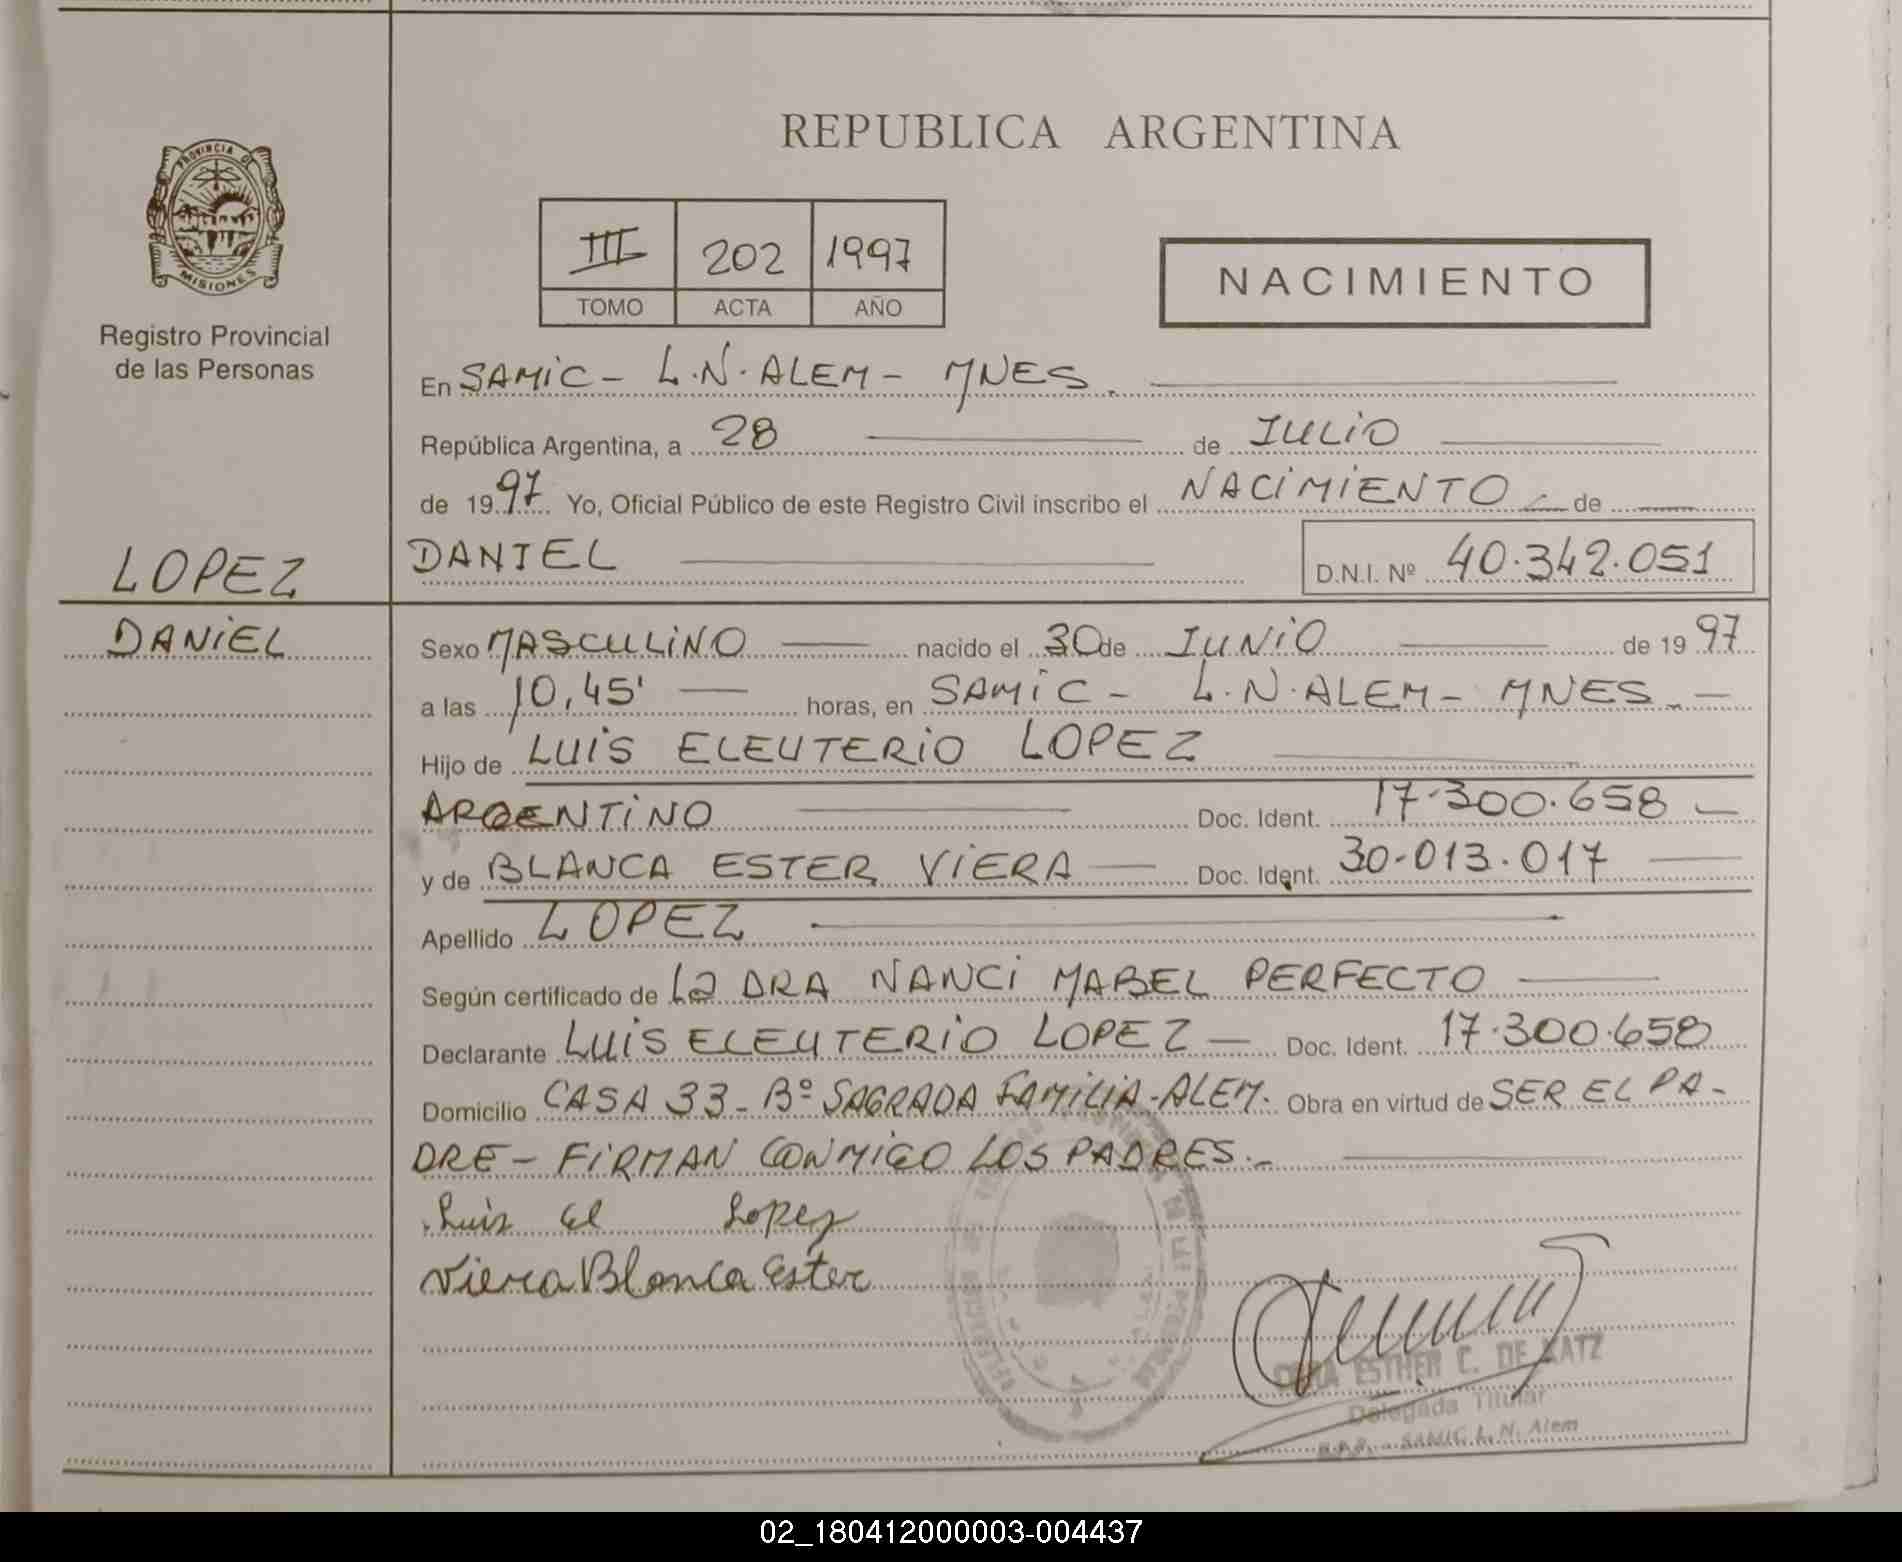 REPUBLICA ARGENTINA
PROVINCIA DE
MISIONES
Registro Provincial
de las Personas
III 202 1997
TOMO ACTA AÑO
NACIMIENTO
En SAMIC - L.N. ALEM - MNES.
República Argentina, a 28 de JULIO
de 1997 Yo, Oficial Público de este Registro Civil inscribo el NACIMIENTO de
LOPEZ
DANIEL
DANIEL D.N.I. Nº 40.342.051
Sexo MASCULINO nacido el 30 de JUNIO de 1997
a las 10,45' horas, en SAMIC - L.N. ALEM - MNES.
Hijo de LUIS ELEUTERIO LOPEZ
ARGENTINO Doc. Ident. 17.300.658
y de BLANCA ESTER VIERA Doc. Ident. 30.013.017
Apellido LOPEZ
Según certificado de La DRA NANCI MABEL PERFECTO
Declarante LUIS ELEUTERIO LOPEZ Doc. Ident. 17.300.658
Domicilio CASA 33 - Bº SAGRADA FAMILIA - ALEM. Obra en virtud de SER EL PA-
DRE - FIRMAN CONMIGO LOS PADRES.-
Luis El Lopez
Viera Blanca Ester
ESTHER C. DE KATZ
Delegada Titular
SAMIC L. N. Alem
02_180412000003-004437